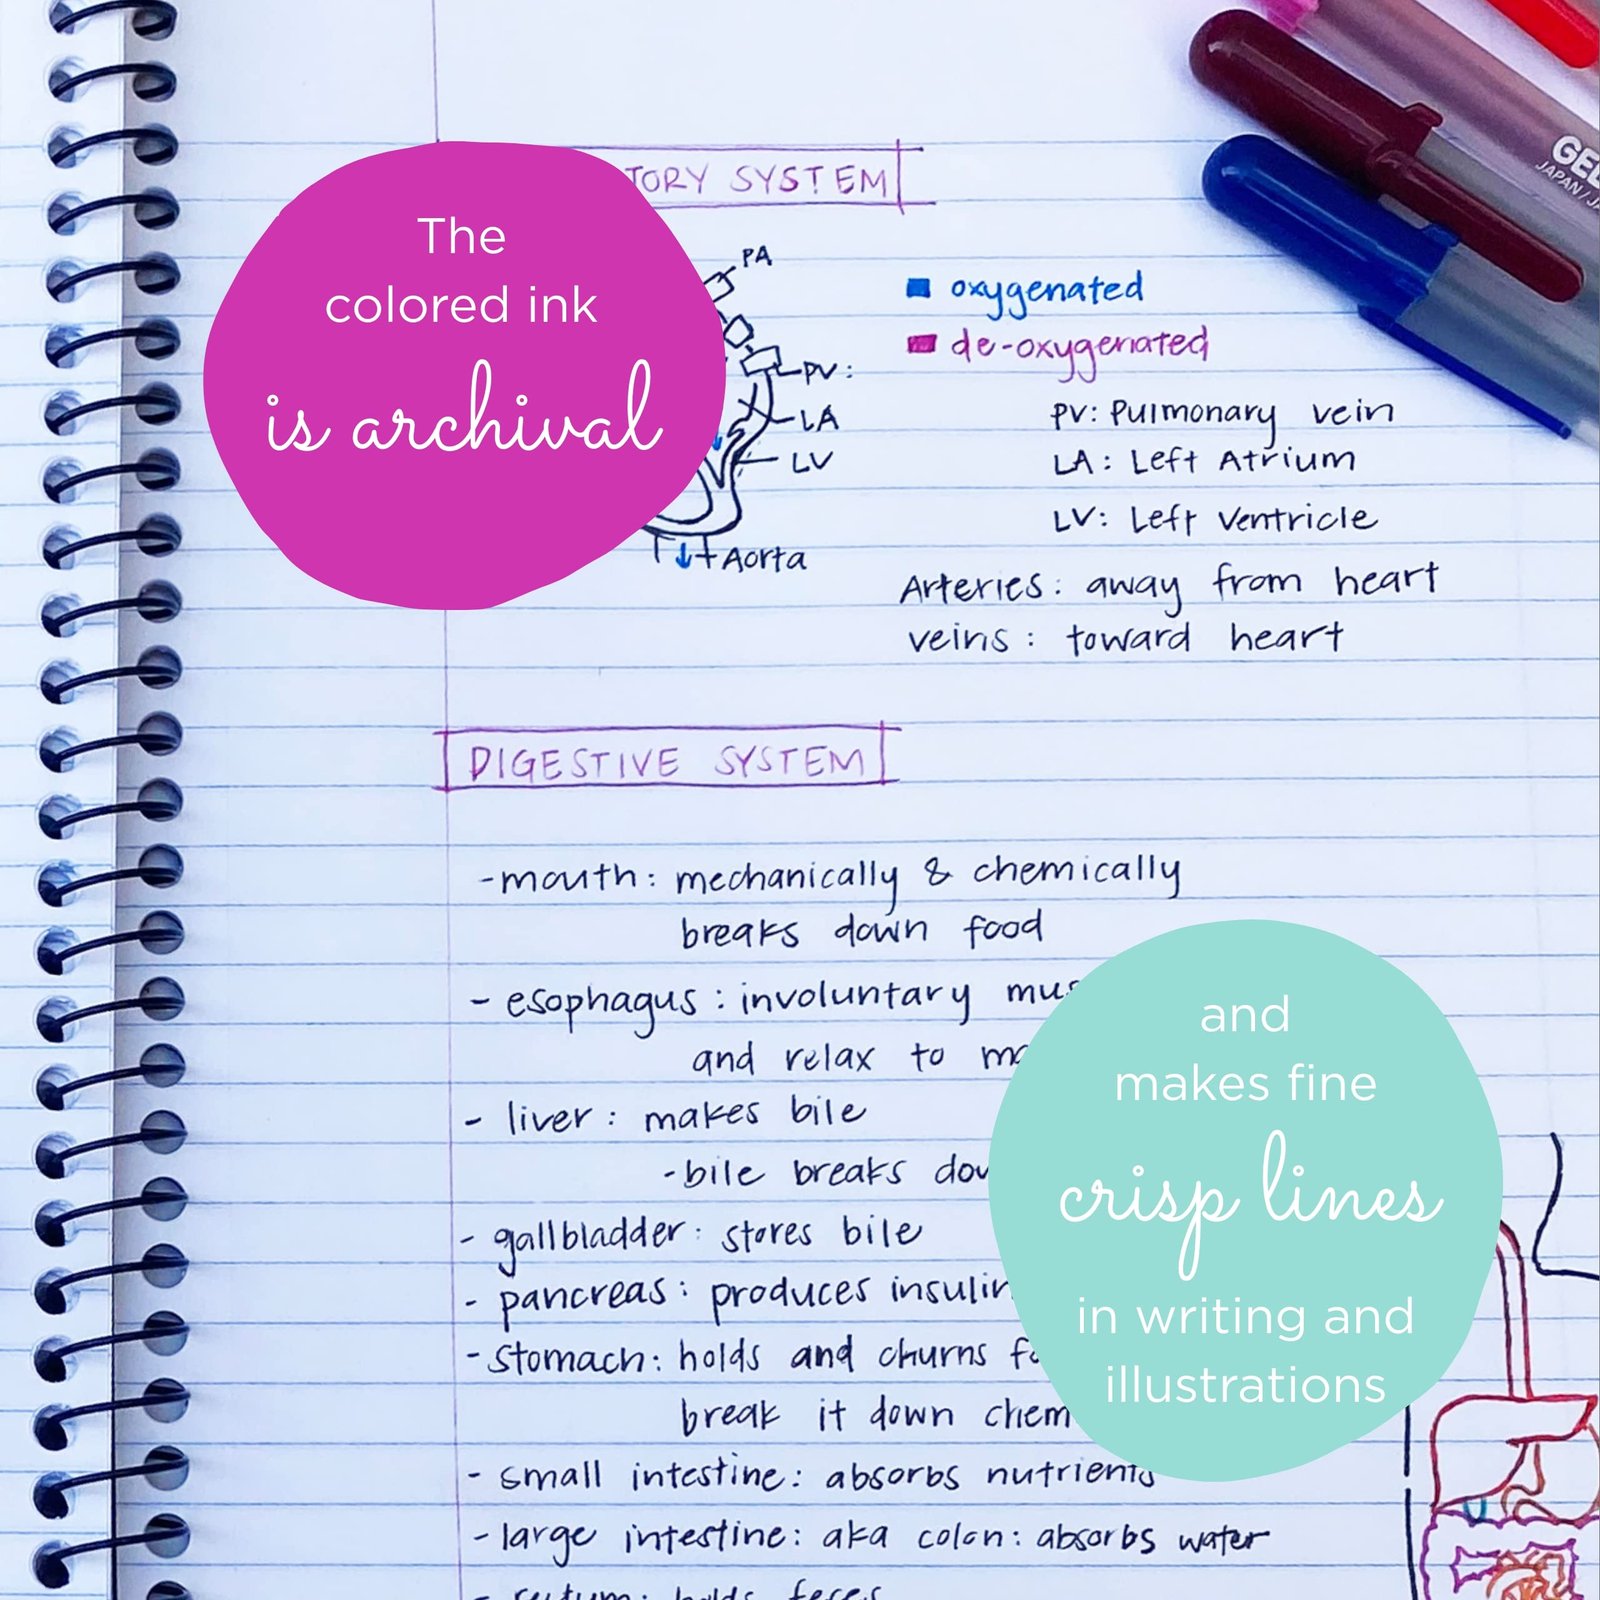 TORY SYSTEM
The
colored ink
is archival
PA
PV:
LA
LV
Aorta
oxygenated
de-oxygenated
PV: Pulmonary vein
LA: Left Atrium
LV: Left Ventricle
Arteries: away from heart
veins: toward heart
GEL
JAPAN/JA
DIGESTIVE SYSTEM
- mouth: mechanically & chemically
breaks down food
- esophagus: involuntary mus
and relax to
- liver: makes bile
- bile breaks dow
- gallbladder: stores bile
- pancreas: produces insulin
- stomach: holds and churns fo
break it down chem
- small intestine: absorbs nutrients
- large intestine: aka colon: absorbs water
- rectum: holds feces
and
makes fine
crisp lines
in writing and
illustrations